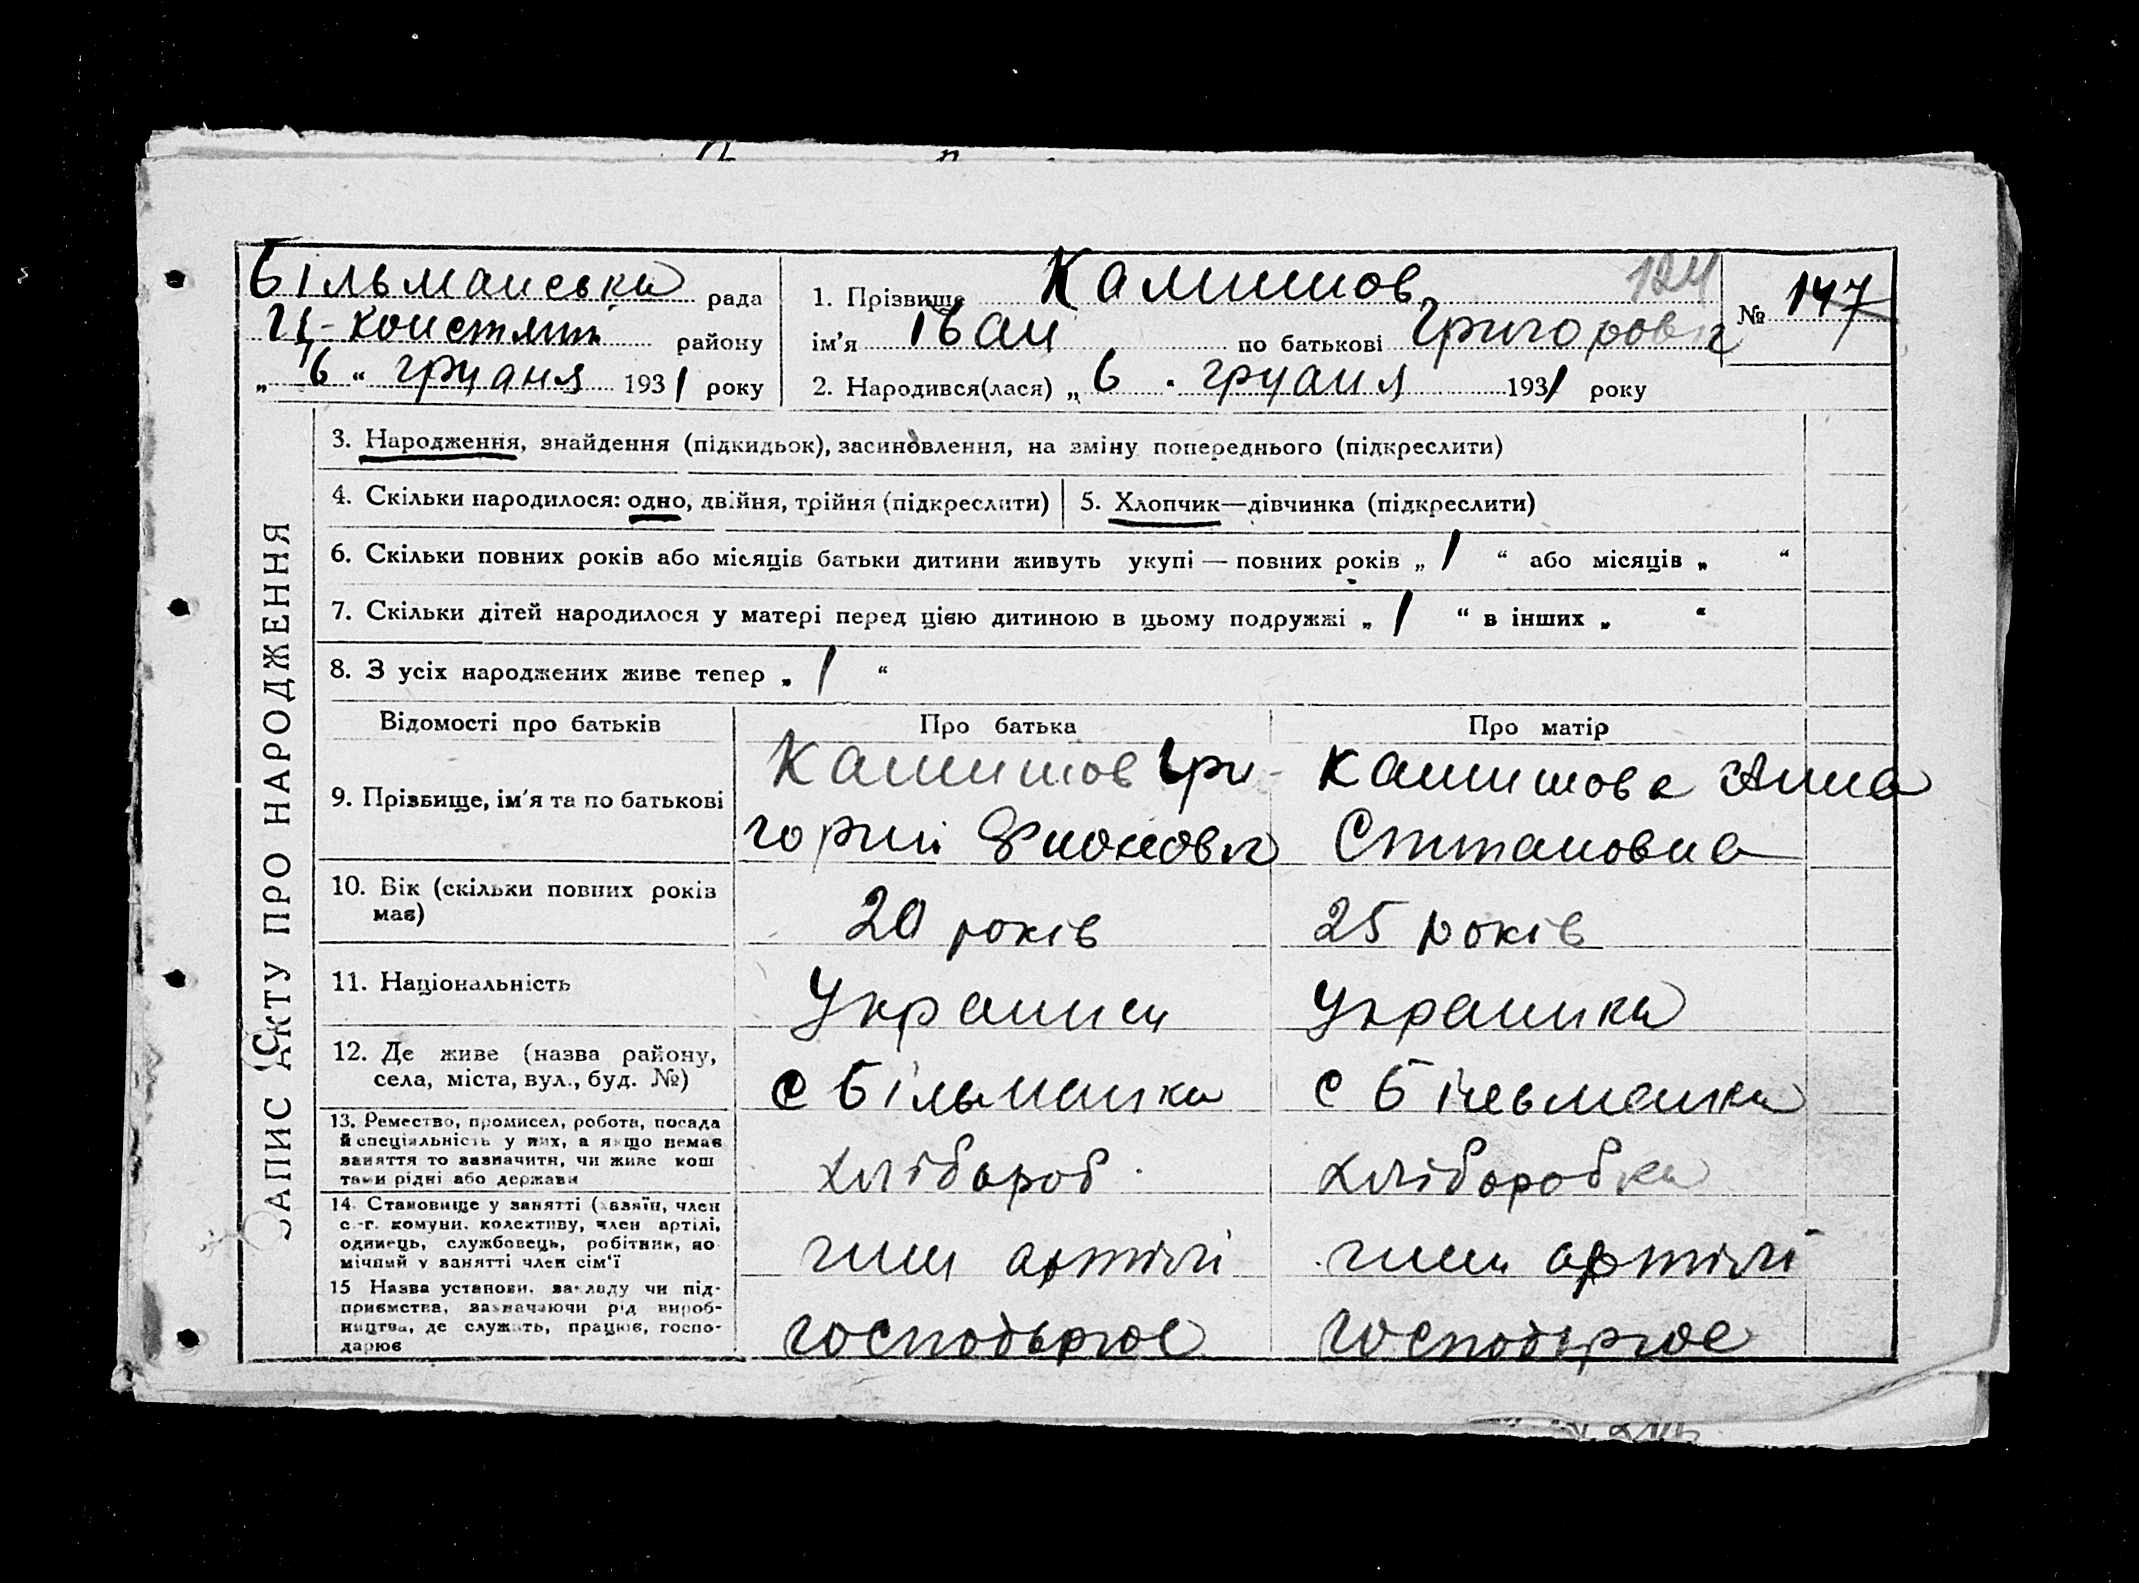 Більманська рада
Ц-Констянт району
„ 6 “ грудня 1931 року
1. Прізвище Камишов 124
ім'я Іван по батькові Григоров
2. Народився(лася) „ 6 . грудня 1931 року
№ 147
ЗАПИС АКТУ ПРО НАРОДЖЕННЯ
3. Народження, знайдення (підкидьок), засиновлення, на зміну попереднього (підкреслити)
4. Скільки народилося: одно, двійня, трійня (підкреслити)
5. Хлопчик—дівчинка (підкреслити)
6. Скільки повних років або місяців батьки дитини живуть укупі — повних років „ 1 “ або місяців „ “
7. Скільки дітей народилося у матері перед цією дитиною в цьому подружжі „ 1 “ в інших „ “
8. З усіх народжених живе тепер „ 1 “
Відомості про батьків
Про батька
Про матір
9. Прізвище, ім'я та по батькові
Камишов Гри-
горий
Камишова Анна
Степановна
10. Вік (скільки повних років
має)
20 років
25 років
11. Національність
Украинец
Украинка
12. Де живе (назва району,
села, міста, вул., буд. №)
с Більманка
с Більманка
13. Ремество, промисел, робота, посада
й спеціяльність у них, а якщо немає
заняття то зазначити, чи живе кош
тами рідні або держави
хлібороб
хлiборобка
14. Становище у занятті (хазяїн, член
с.-г. комуни, колективу, член артілі,
одинець, службовець, робітник, по
мічний у занятті член сім'ї
член артілі
член артілі
15 Назва установи, закладу чи під-
приємства, зазначаючи рід вироб-
ництва, де служить, працює, госпо-
дарює
господарює
господарює